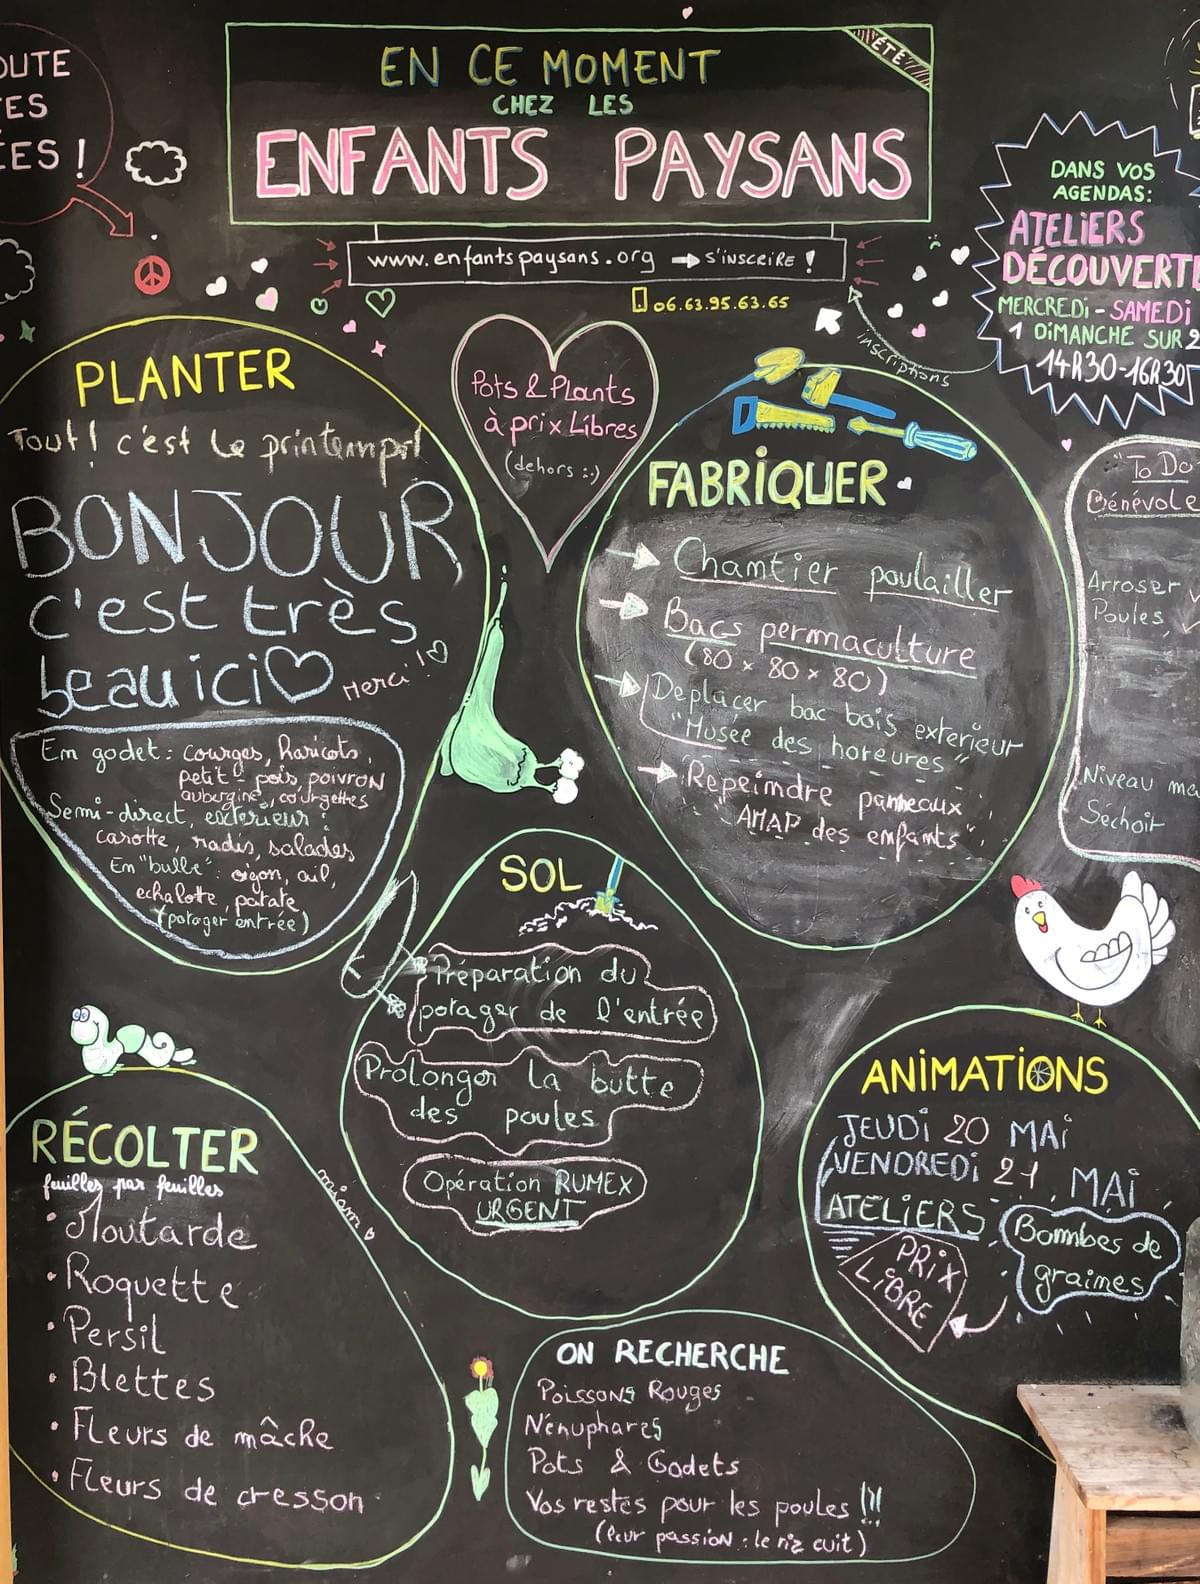 OUTE
TES
ÉES !
EN CE MOMENT
CHEZ LES
ENFANTS PAYSANS
ÉTÉ
www.enfantspaysans.org → S'INSCRIRE !
06.63.95.63.65
inscriptions
DANS VOS
AGENDAS:
ATELIERS
DÉCOUVERTE
MERCREDi - SAMEDi
1 DIMANCHE SUR 2
14H30-16H30
PLANTER
Tout! c'est le printemps!
BONJOUR
c'est très
beau ici♡
Merci !♡
En godet : courges, haricots,
petit-pois, poivron
aubergines, courgettes
Semi-direct, extérieur :
carotte, radis, salades
En "bulle" : oigon, ail,
echalotte, patate
(potager entrée)
Pots & Plants
à prix Libres
(dehors :-)
FABRiQUER
→ Chantier poulailler
→ Bacs permaculture
(80 x 80 x 80)
→ Deplacer bac bois exterieur
"Musée des horeures"
→ Repeindre panneaux
"AMAP des enfants"
"To Do
Bénévole
Arroser
Poules
Niveau ma
Séchoir
SOL
Préparation du
potager de l'entrée
Prolonger la butte
des poules
Opération RUMEX
URGENT
RÉCOLTER
feuilles par feuilles
• Moutarde
• Roquette
• Persil
• Blettes
• Fleurs de mâche
• Fleurs de cresson
miam
ANiMATiONS
JEUDi 20 MAi
VENDREDi 21 MAi
ATELiERS
Bombes de
graines
PRiX
LiBRE
ON RECHERCHE
Poissons Rouges
Nénuphares
Pots & Godets
Vos restes pour les poules !!!
(leur passion : le riz cuit)